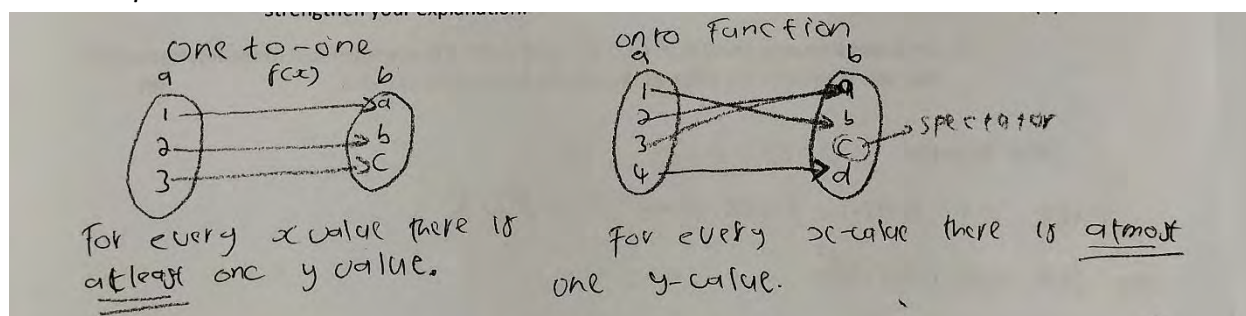 strengthen your explanation.
one to-one
a f(x) b
1 a
2 b
3 c
For every x value there is
atleast one y value.
onto Function
a b
1 a
2 b
3 c spectator
4 d
For every x-value there is atmost
one y-value.